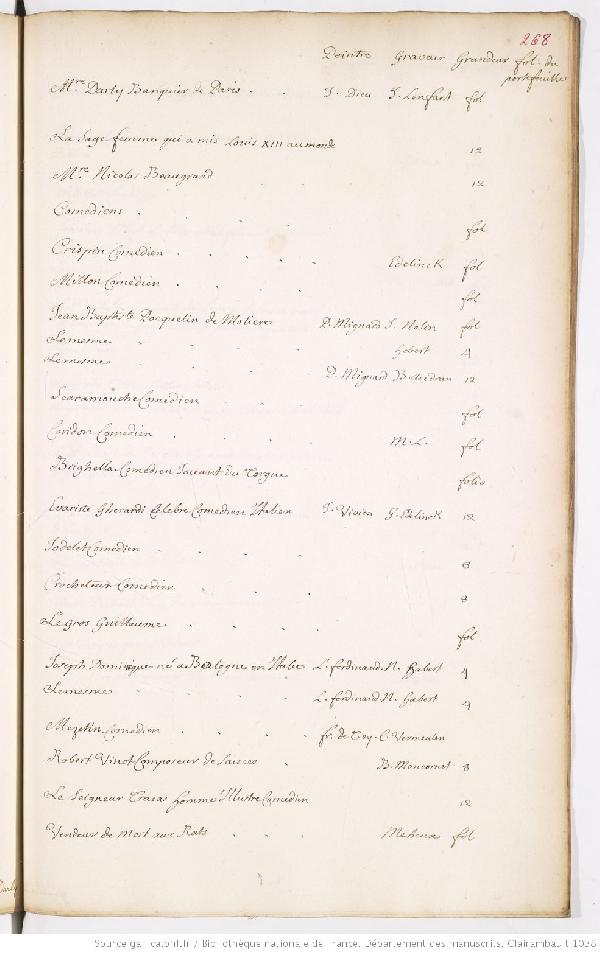 268
Peintre Graveur Grandeur fol. du
portefeuille
Mre. Darly Banquier de Paris . . J. Dieu J. Lenfant fol
La Sage femme qui a mis Louis XIII au monde 12
Mre. Nicolas Beaugrand . . 12
Comediens . . . . fol
Crispin Comedien . . . . Edelinck fol
Millon Comedien . . . . fol
Jean Baptiste Pocquelin de Moliere P. Mignard J. Nolin fol
Lemesme . . . . Hebert 4
Lemesme . . . . P. Mignard B. Audran 12
Scaramouche Comedien . . . fol
Coridon Comedien . . . . M. L. fol
Brighella Comedien Jouant du folio
Evariste Gherardi Celebre Comedien Italien J. Vivien G. Edelinck 12
Jodelet Comedien . . . . 8
Crocheteur Comedien . . . 8
Le gros Guillaume . . . . fol
Joseph Dominique né a Bologne en Italie L. ferdinand N. Habert 4
Lemesme . . . . L. ferdinand N. Habert 4
Mezetin Comedien . . . . fr. de Troy C. Vermeulen
Robert Vinot Composeur de Sauces . B. Moncornet 8
Le Seigneur homme Illustre Comedien 12
Vendeur de Mort aux Rats . . . fol
Source gallica.bnf.fr / Bibliothèque nationale de France. Département des manuscrits. Clairambault 1038